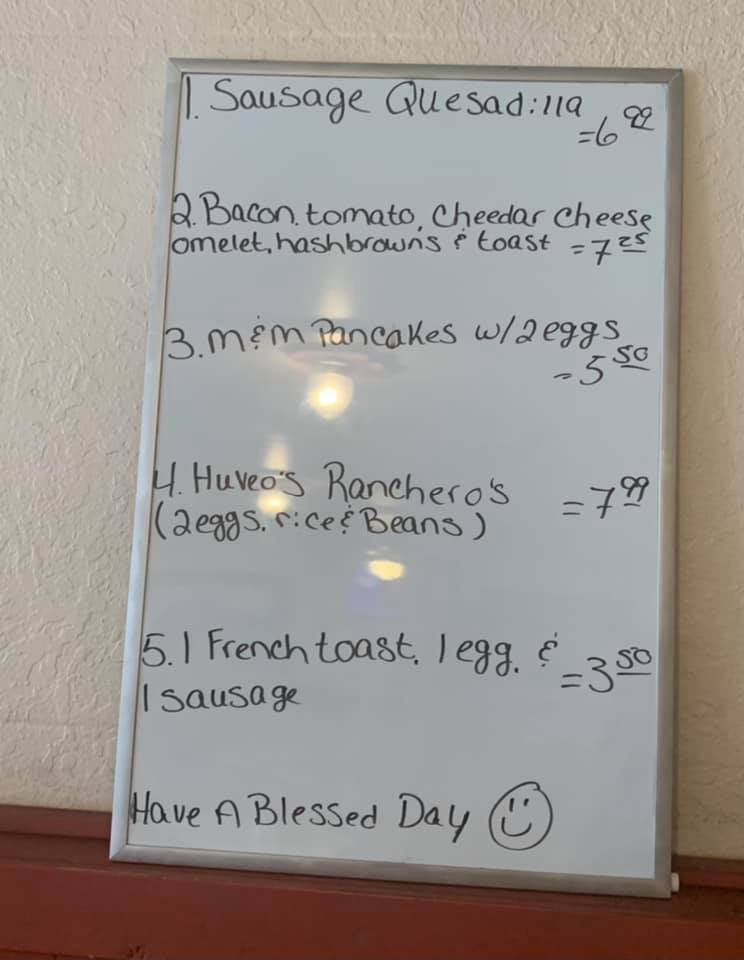 1. Sausage Quesadilla
=6 99
2. Bacon, tomato, Cheedar Cheese
omelet, hashbrowns & toast =7 25
3. M&M Pancakes w/2eggs
=5 50
4. Huveo's Ranchero's =7 99
(2eggs, rice & Beans)
5. 1 French toast, 1 egg, & =3 50
1 sausage
Have A Blessed Day